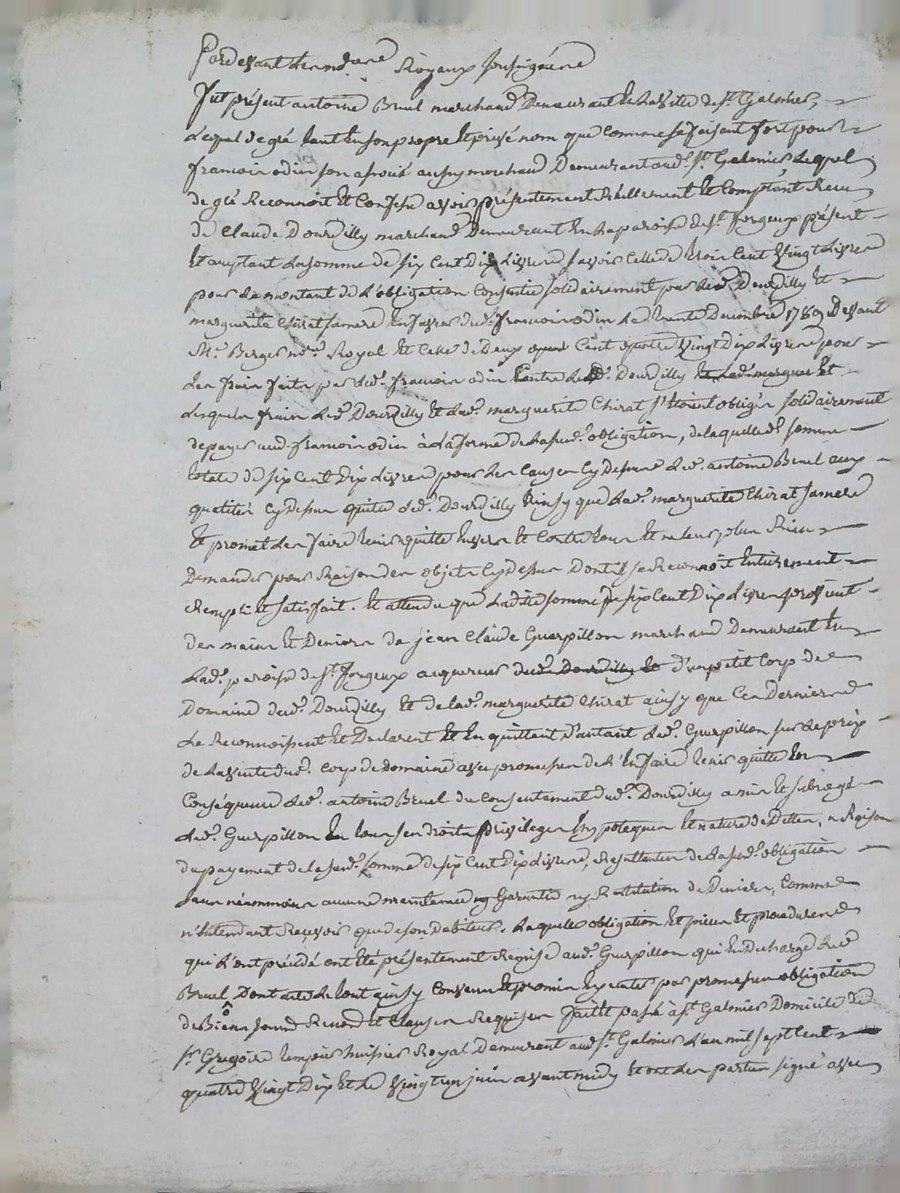 Pardevant les notaires Royaux soussignés
Fut présent antoine Bruel marchand Demeurant en la ville de st. Galmier,
Lequel de gré tant en son propre et privé nom que comme se faisant fort pour
francois odin son associé aussy marchand Demeurant aud. st. Galmier Lequel
de gré Reconnoit et Confesse avoir présentement Réellement et Comptant Receu
de Claude Dourdilly marchand Demeurant en la paroisse de st. forgeux présent
Et acceptant la somme de six Cent Dix Livres savoir Celle de trois Cent Vingt Livres
pour le montant de L'obligation Consentie solidairement par led. Dourdilly et
marguerite Chirat sa mere en faveur dud. francois odin le trente Decembre 1789 Devant
Me. Berger nore. Royal et Celle de Deux Cent quatre Vingt Dix Livres pour
Les frais faits par led. francois odin Contre led. Dourdilly et lad. marguerite
Lesquels frais led. Dourdilly et lad. marguerite Chirat s'etoient obligés solidairement
de payer aud. francois odin à la forme de la susd. obligation, de laquelle somme
totale de six Cent Dix Livres pour les Causes Cy dessus led. antoine Bruel aux
qualités Cy dessus quitte led. Dourdilly Ainsy que lad. marguerite Chirat sa mere
Et promet les faire tenir quitte Envers et Contre tous Et ne leur plus Rien
Demander pour Raison des objets Cy dessus Dont il se Reconnoit Entierement
Rempli et satisfait. Et attendu que Ladite somme de six Cent Dix Livres provient
des mains Et Deniers de jean Claude Guerpillon marchand Demeurant En
Lad. paroisse de st. forgeux acquereur dud. Dourdilly et d'un petit Corps de
Domaine dud. Dourdilly Et de lad. marguerite Chirat ainsy que Ces Derniers
Le Reconnoissent Et Declarent Et En quittent D'autant led. Guerpillon sur le prix
de la vente dud. Corps de Domaine avec promesse de L'En faire tenir quitte En
Conséquence led. antoine Bruel du Consentement dud. Dourdilly a mis Et subrogé
led. Guerpillon En tous ses droits privileges hypoteques Et nature de Dettes, a Raison
du payement de la susd. somme de six Cent Dix Livres, Resultantes de la susd. obligation
sans néanmoins aucune maintenue ny Garantie ny Restitution de Deniers, Comme
n'Entendant Recevoir que de son debiteur. Laquelle obligation Et pieces Et procedures
qui L'ont précédé ont été présentement Remise aud. Guerpillon qui En Decharge led.
Bruel Dont acte Le tout ainsy Convenu Et promis Executer par promesses obligation
de Biens soumis Renonce Et Clauses Requises fait Et passé à st. Galmier Domicile de
sr. Gregoire huissier Royal Demeurant aud. st. Galmier L'an mil sept Cent
quatre Vingt Dix Et le Vingt un juin avant midy Et ont les parties signé avec